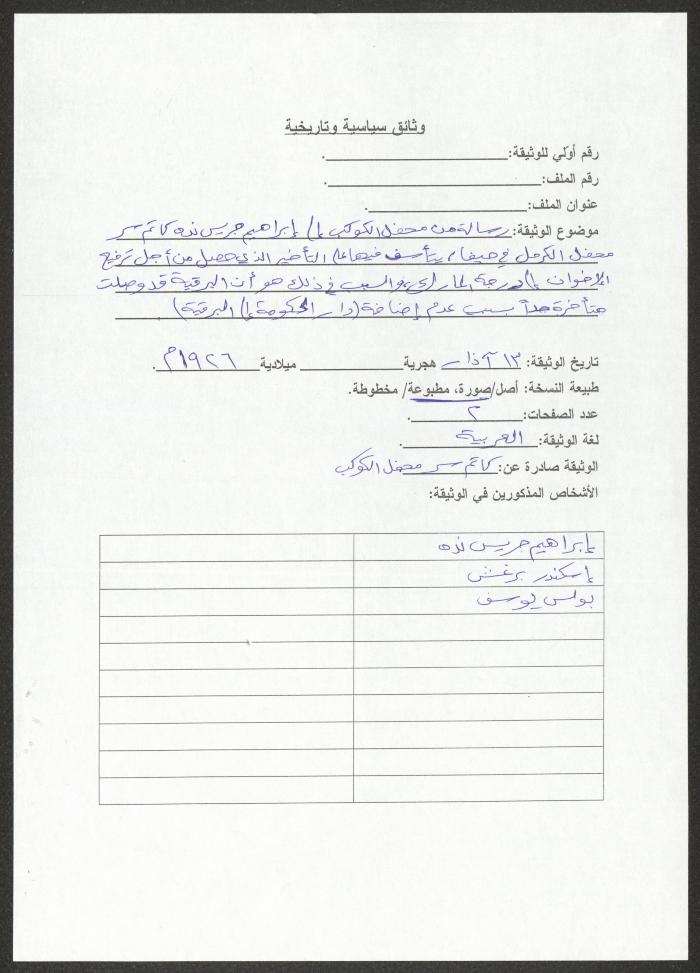 وثائق سياسية وتاريخية
رقم أولي للوثيقة: ________.
رقم الملف: ________.
عنوان الملف: ________.
موضوع الوثيقة: رسالة من محفل الكوكب إلى إبراهيم جريس نده كاتم سر
محفل الكرمل في حيفا، يتأسف فيها على التأخير الذي حصل من أجل ترفيع
الإخوان إلى درجة المارك، والسبب في ذلك هو أن البرقية قد وصلت
متأخرة جداً بسبب عدم إضافة (دار الحكومة إلى البرقية)
تاريخ الوثيقة: ١٣ آذار هجرية ________ ميلادية ١٩٢٦م.
طبيعة النسخة: أصل/صورة، مطبوعة/ مخطوطة.
عدد الصفحات: ٢.
لغة الوثيقة: العربية.
الوثيقة صادرة عن: كاتم سر محفل الكوكب
الأشخاص المذكورين في الوثيقة:
إبراهيم جريس نده
إسكندر برغش
بولس يوسف